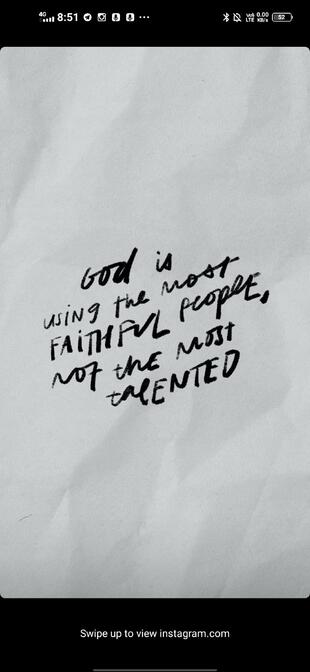 4G 8:51
VoLTE 0.00 KB/s 52
God is
using the most
FAITHFUL people,
not the most
talENTED
Swipe up to view instagram.com